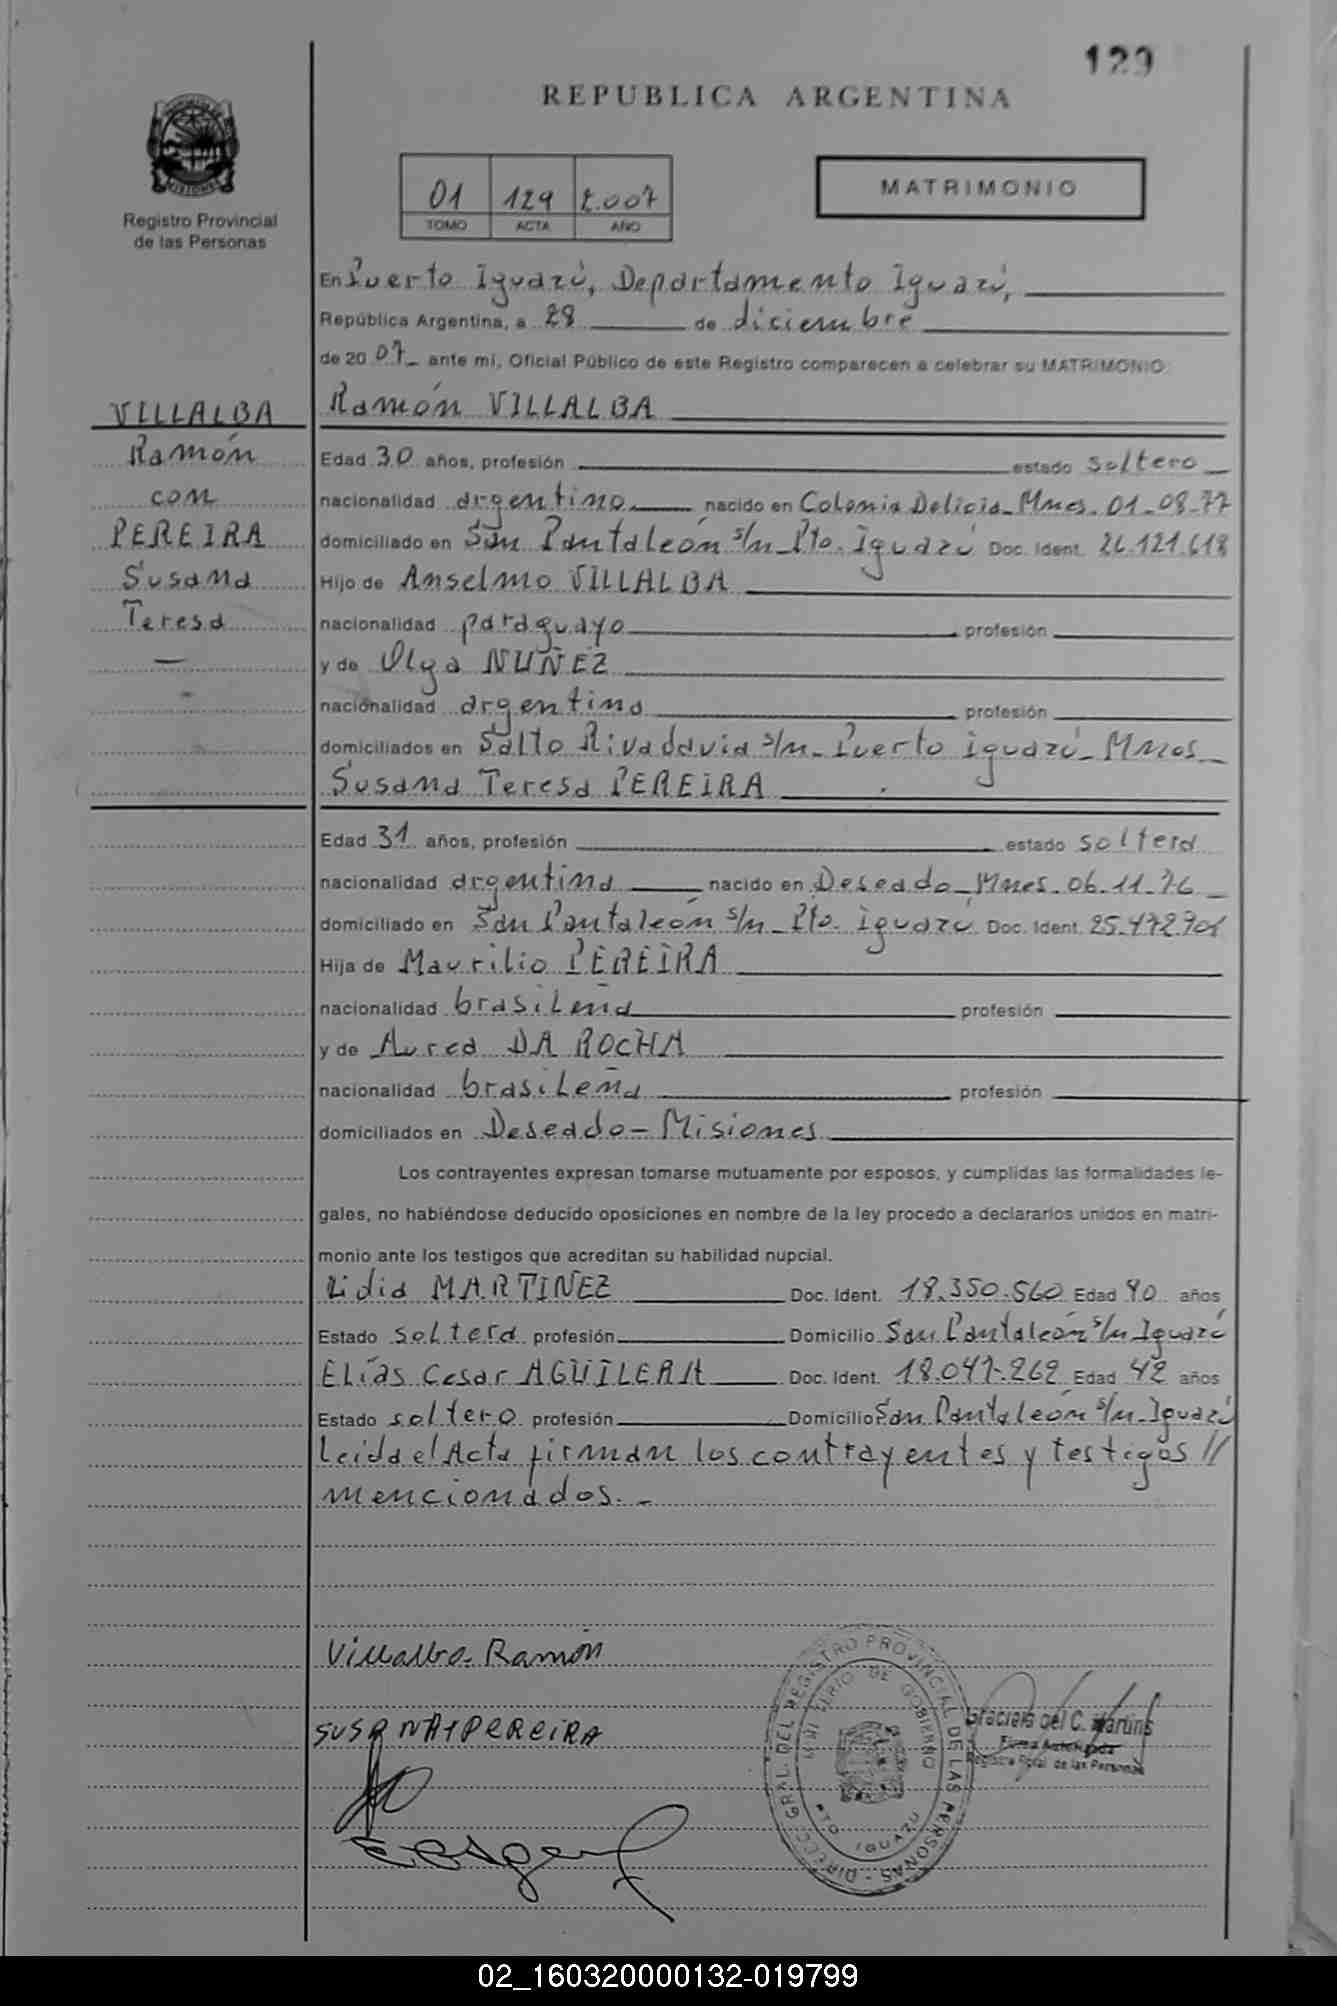 129
REPUBLICA ARGENTINA
Registro Provincial
de las Personas
01 129 2.007
TOMO ACTA AÑO
MATRIMONIO
En Puerto Iguazú, Departamento Iguazú,
República Argentina, a 28 de diciembre
de 20 07 ante mi, Oficial Público de este Registro comparecen a celebrar su MATRIMONIO:
VILLALBA
Ramón
con
PEREIRA
Susana
Teresa
Ramón VILLALBA
Edad 30 años, profesión estado soltero
nacionalidad argentino nacido en Colonia Delicia_Mnes_01_08_77
domiciliado en San Pantaleón s/n_Pto. Iguazú Doc. Ident. 26.121.618
Hijo de Anselmo VILLALBA
nacionalidad paraguayo profesión
y de Olga NUÑEZ
nacionalidad argentina profesión
domiciliados en Salto Rivadavia s/n_Puerto Iguazú_Mnes_
Susana Teresa PEREIRA
Edad 31 años, profesión estado soltera
nacionalidad argentina nacido en Deseado_Mnes_06.11.76_
domiciliado en San Pantaleón s/n_Pto. Iguazú Doc. Ident. 25.472.701
Hija de Maurilio PEREIRA
nacionalidad brasileña profesión
y de Aurea DA ROCHA
nacionalidad brasileña profesión
domiciliados en Deseado-Misiones
Los contrayentes expresan tomarse mutuamente por esposos, y cumplidas las formalidades le-
gales, no habiéndose deducido oposiciones en nombre de la ley procedo a declararlos unidos en matri-
monio ante los testigos que acreditan su habilidad nupcial.
Lidia MARTINEZ Doc. Ident. 18.350.560 Edad 40 años
Estado soltera profesión Domicilio San Pantaleón s/n Iguazú
Elías Cesar AGUILERA Doc. Ident. 18.047.262 Edad 42 años
Estado soltero profesión Domicilio San Pantaleón s/n_Iguazú
Leida el Acta firman los contrayentes y testigos //
mencionados._
Villalba Ramón
SUSANA T PEREIRA
DIRECC. GRAL. DEL REGISTRO PROVINCIAL DE LAS PERSONAS
MINISTERIO DE GOBIERNO
PTO IGUAZU
Graciela del C. Martins
Firma Autorizada
Registro Pcial. de las Personas
02_160320000132-019799